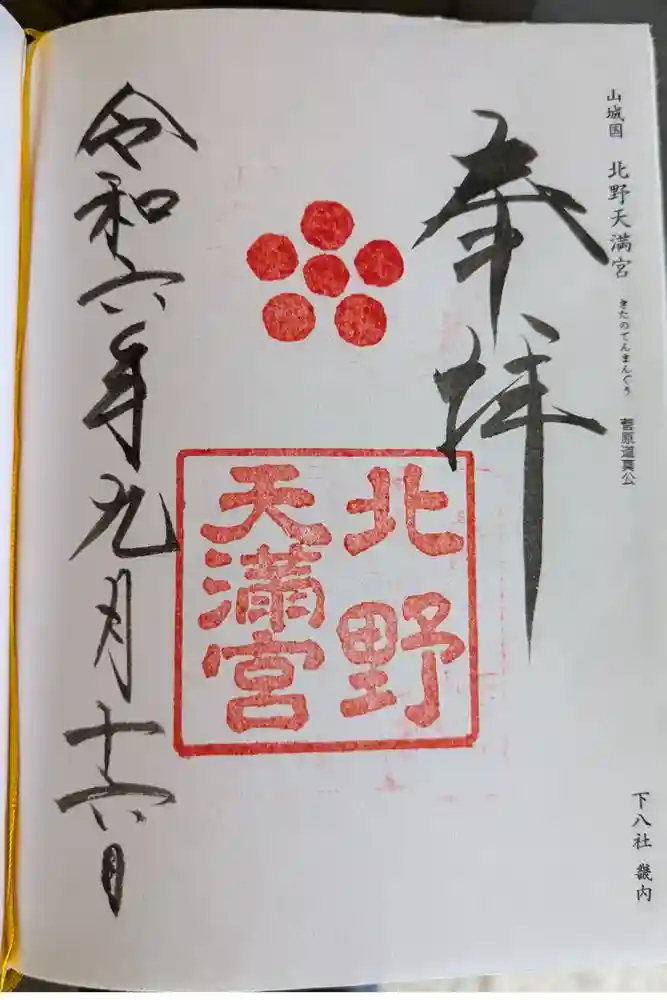 山城国 北野天満宮 きたのてんまんぐう 菅原道真公
下八社 畿内
奉拝
北野
天満宮
令和六年九月十六日